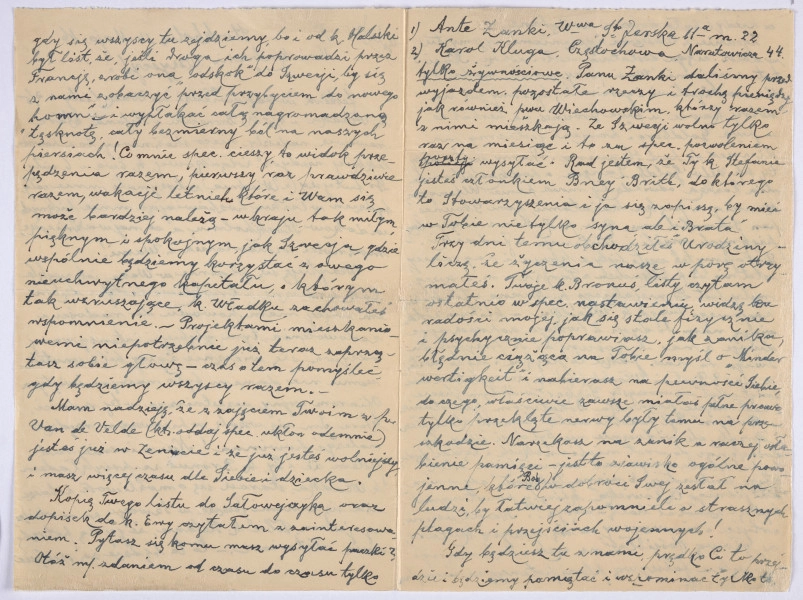 gdy się wszyscy tu zejdziemy, bo i od k. Haleski
był list, że, jeśli droga ich poprowadzi przez
Francję, zrobi ona "odskok" do Szwecji, by się
z nami zobaczyć przed przybyciem do nowego
"homu" i wypłakać całą nagromadzoną
tęsknotę, cały bezmierny ból na naszych
piersiach! Co mnie spec. cieszy, to widok przepę-
pędzenia razem, pierwszy raz prawdziwie
razem, wakacji letnich, które i Wam się
może bardziej należą - w kraju tak miłym
pięknym i spokojnym, jak Szwecja, gdzie
wspólnie będziemy korzystać z owego
nieuchwytnego kapitału, o którym
tak wzruszające, k. Władku zachowałeś
wspomnienie. - Projektami mieszkanio-
wemi niepotrzebnie już teraz zaprzą-
tasz sobie głowę - czas o tem pomyśleć
gdy będziemy wszyscy razem. -
Mam nadzieję, że z zajęciem Twoim z p.
Van de Velde (kt. oddaj spec. ukłon odemnie)
jesteś już w Zenicie i że już jesteś wolniejszy
i masz więcej czasu dla Siebie i dziecka.
Kopię Twego listu do Satowejczyka oraz
dopisek do k. Ewy czytałem z zainteresowa-
niem. Pytasz się komu masz wysyłać paczki?
Otóż m/ zdaniem od czasu do czasu tylko
1) Ante Zanki, W-wa 11a m. 22
2) Karol Kluga, Częstochowa Narutowicza 44.
tylko żywnościowe. Panu Zanki daliśmy przed
wyjazdem pozostałe rzeczy i trochę pieniędzy
jak również pwu Wiechowskim, którzy razem
z nimi mieszkają. Ze Szwecji wolno tylko
raz na miesiąc i to za spec. pozwoleniem
wysyłać. Rad jestem, że Ty k. Stefanie
jesteś członkiem Bney Brith, do którego
to Stowarzyszenia i ja się zapiszę, by mieć
w Tobie nietylko syna ale i Brata
Trzy dni temu obchodziłeś Urodziny -
liczę, że życzenia nasze w porę otrzy-
małeś. Twoje k. Bronuś, listy czytam
ostatnio w spec. nastawieniu, widzę ku
radości mojej jak się stale fizycznie
i psychicznie poprawiasz, jak zanika,
błędnie ciążąca na Tobie myśl o "Minder
wertigkeit" i nabierasz na pewności Siebie,
do czego, właściwie zawsze miałaś pełne prawo
tylko przeklęte nerwy były temu na prze-
szkodzie. Narzekasz na zanik a raczej osła-
bienie pamięci - jest to zjawisko ogólne powo-
jenne, które Bóg w dobroci Swej zesłał na
ludzi, by łatwiej zapomnieli o strasznych
plagach i przejściach wojennych!
Gdy będziesz tu z nami, prędko Ci to przej-
dzie i będziemy pamiętać i wspominać tylko te